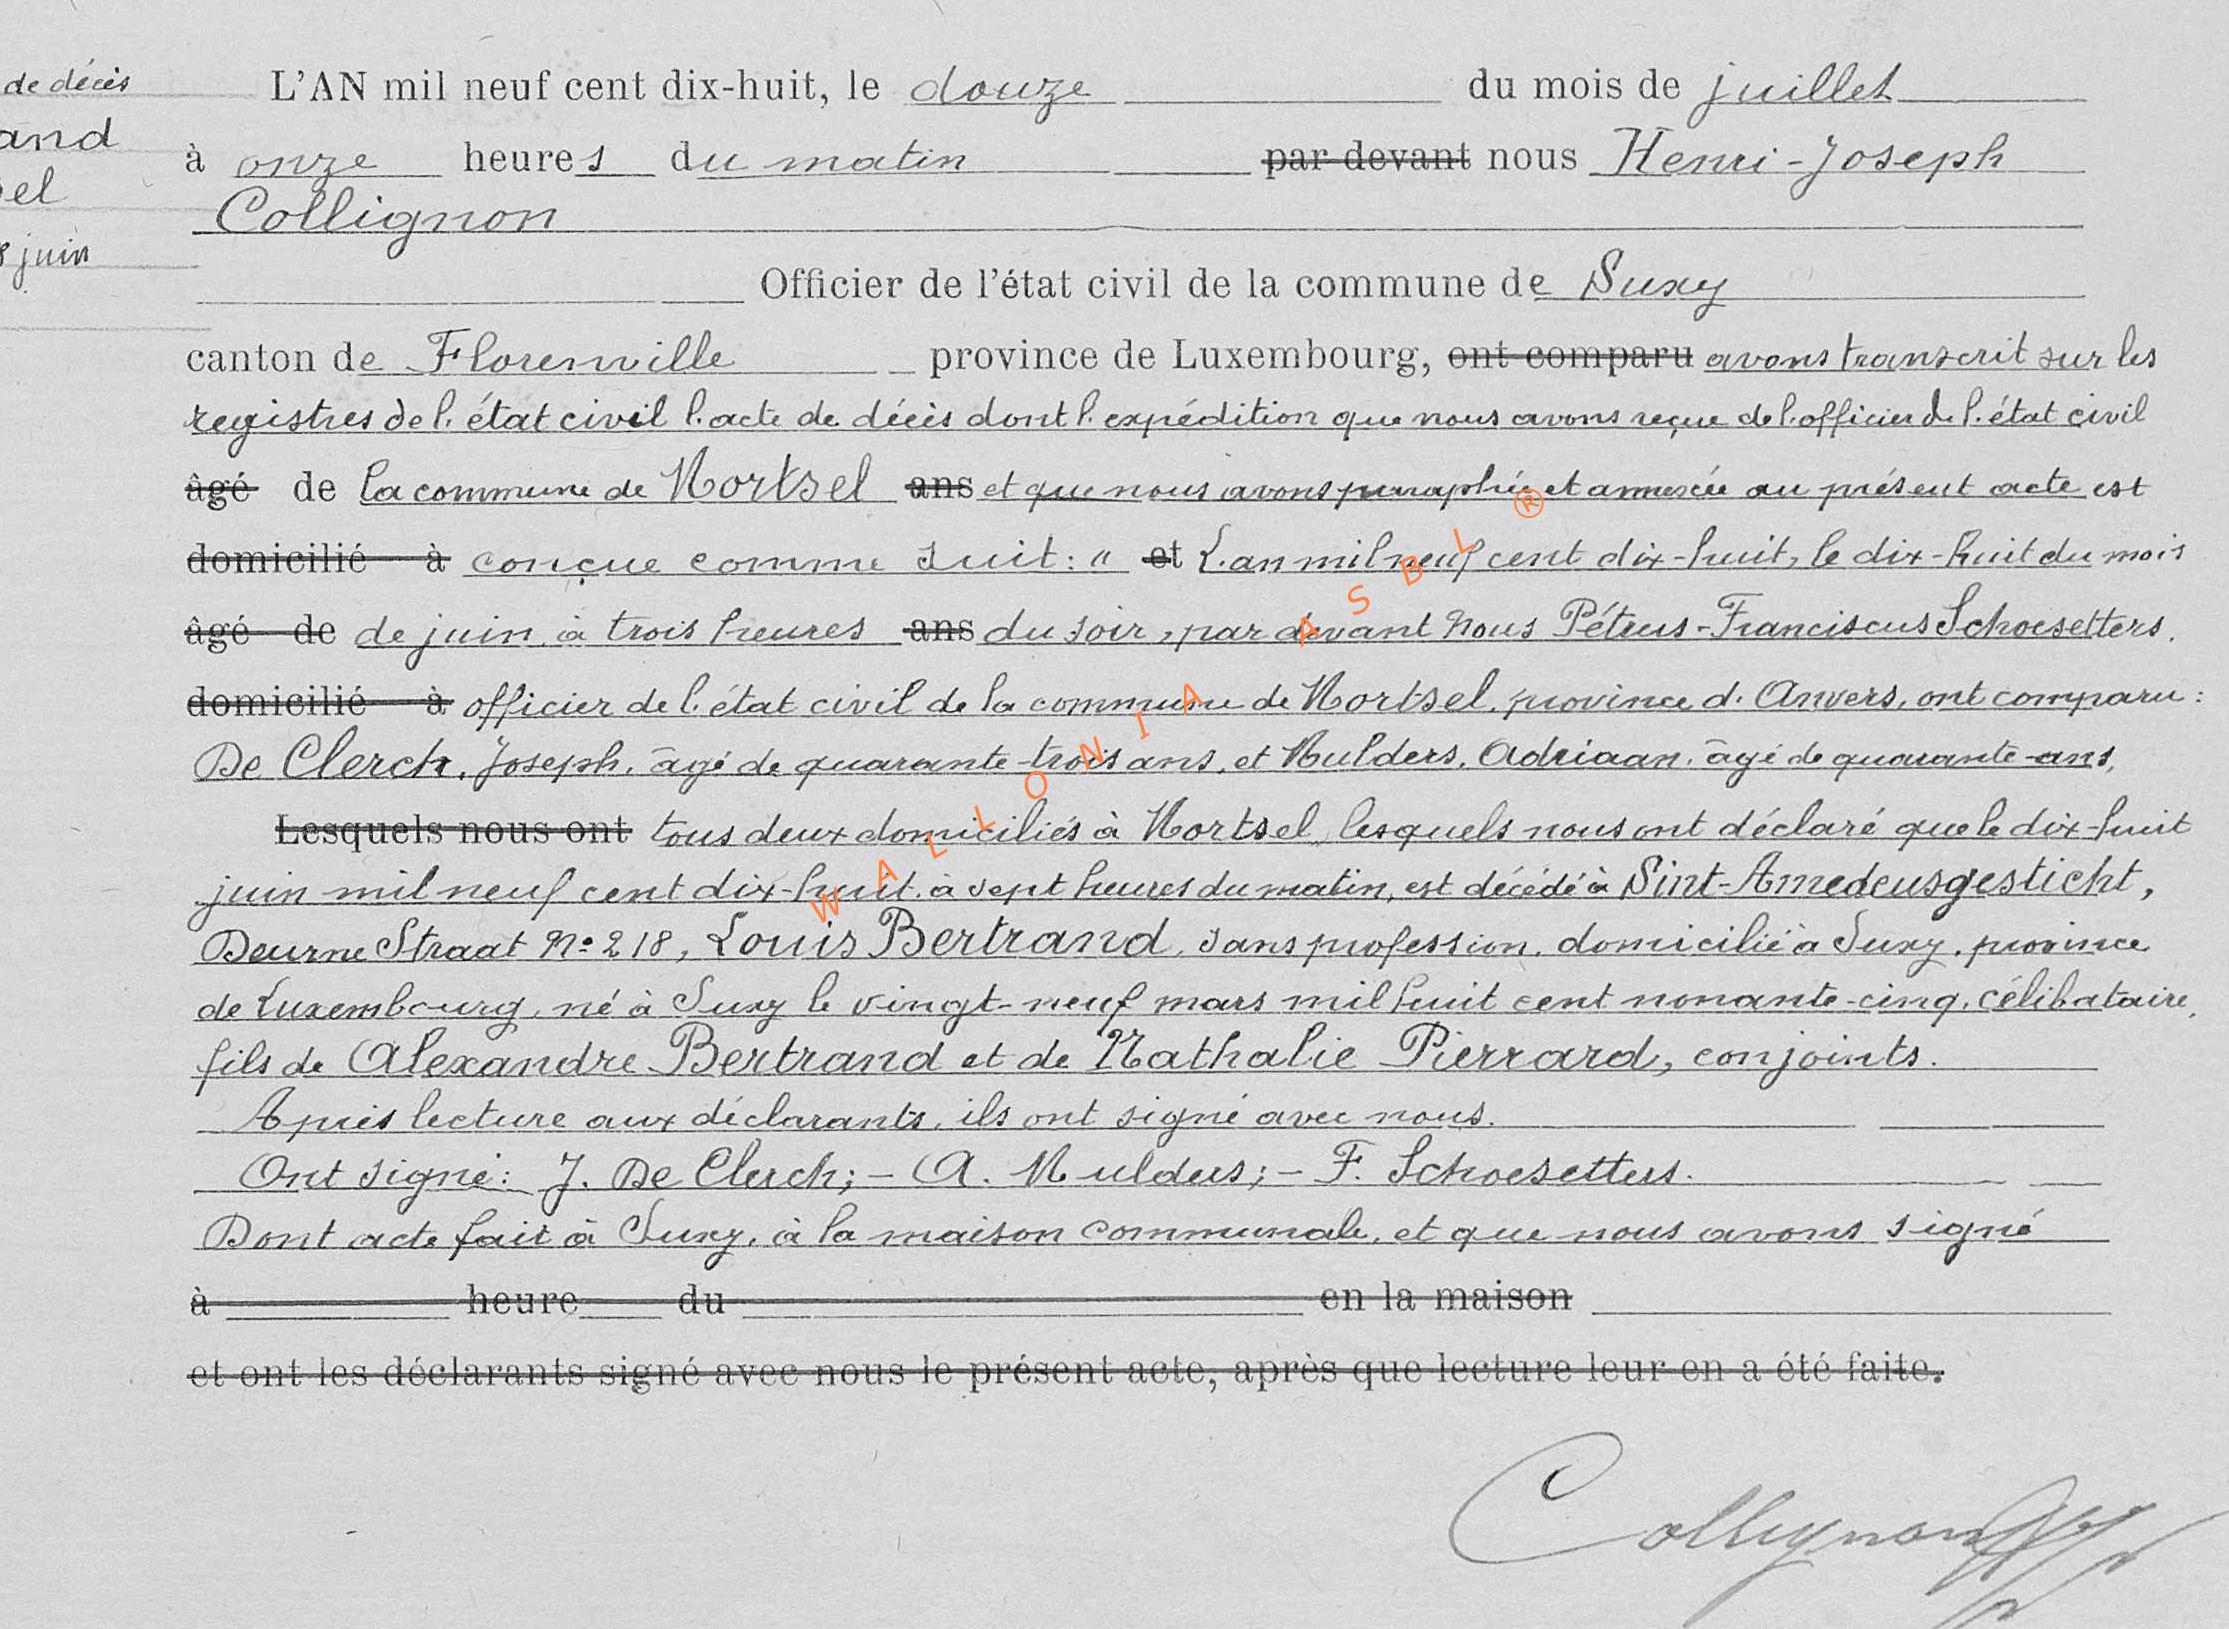 de décès
and
el
juin
L'AN mil neuf cent dix-huit, le douze du mois de juillet
à onze heures du matin par devant nous Henri-Joseph
Collignon
Officier de l'état civil de la commune de Suxy
canton de Florenville province de Luxembourg, ont comparu avons transcrit sur les
registres de l'état civil l'acte de décès dont l'expédition que nous avons reçue de l'officier de l'état civil
âgé de la commune de Mortsel ans et que nous avons paraphée et annexée au présent acte est
domicilié à conçue comme suit : " et L'an mil neuf cent dix-huit, le dix-huit du mois
âgé de de juin, à trois heures ans du soir, par devant nous Pétrus-Franciscus Schoesetters,
domicilié à officier de l'état civil de la commune de Mortsel, province d'Anvers, ont comparu :
De Clerck, Joseph, âgé de quarante-trois ans, et Mulders, Adriaan, âgé de quarante-ans,
Lesquels nous ont tous deux domiciliés à Mortsel, lesquels nous ont déclaré que le dix-huit
juin mil neuf cent dix-huit, à sept heures du matin, est décédé à Sint-Amedeusgesticht,
Deurne Straat N° 218, Louis Bertrand, sans profession, domicilié à Suxy, province
de Luxembourg, né à Suxy le vingt-neuf mars mil huit cent nonante-cinq, célibataire,
fils de Alexandre Bertrand et de Nathalie Pierrard, conjoints.
Après lecture aux déclarants, ils ont signé avec nous.
Ont signé : J. De Clerck ; - A. Mulders ; - F. Schoesetters.
Dont acte fait à Suxy, à la maison communale, et que nous avons signé
à heure du en la maison
et ont les déclarants signé avec nous le présent acte, après que lecture leur en a été faite.
Collignon
WALLONIA ASBL ®